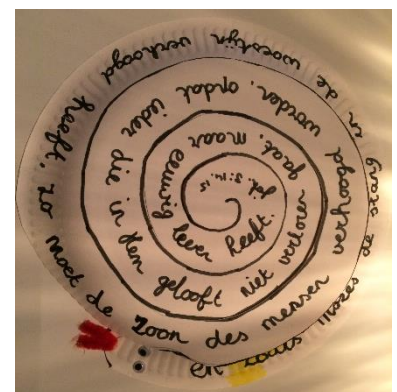 en zoals Mozes de slang in de woestijn verhoogd heeft. zo moet de Zoon des mensen verhoogd worden. opdat ieder die in Hem gelooft niet verloren gaat. maar eeuwig leven heeft.
Joh. 3:14.15